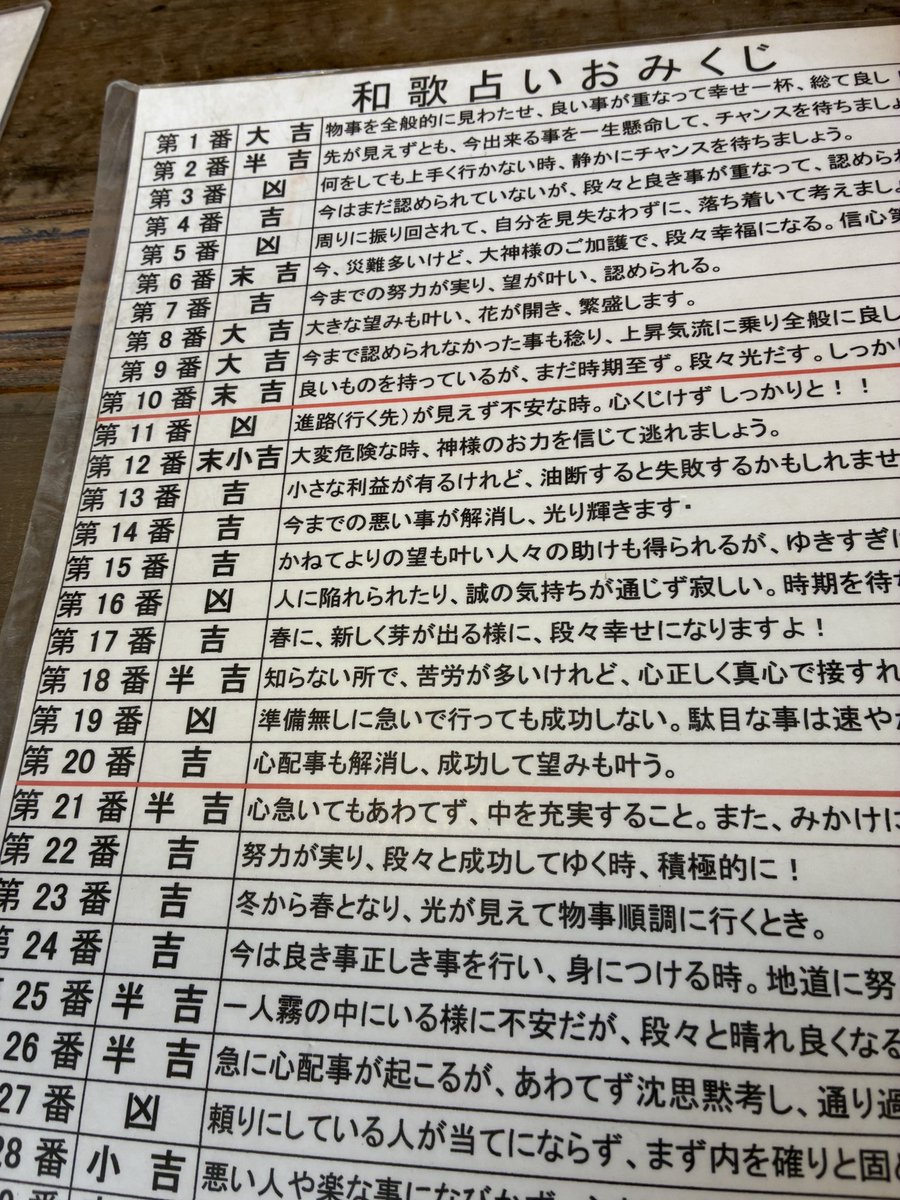 和歌占いおみくじ
第1番 大吉 物事を全般的に見わたせ、良い事が重なって幸せ一杯、総て良し
第2番 半吉 先が見えずとも、今出来る事を一生懸命して、チャンスを待ちましょ
第3番 凶 何をしても上手く行かない時、静かにチャンスを待ちましょう。
第4番 吉 今はまだ認められていないが、段々と良き事が重なって、認められ
第5番 凶 周りに振り回されて、自分を見失なわずに、落ち着いて考えましょ
第6番 末吉 今、災難多いけど、大神様のご加護で、段々幸福になる。信心
第7番 吉 今までの努力が実り、望が叶い、認められる。
第8番 大吉 大きな望みも叶い、花が開き、繁盛します。
第9番 大吉 今まで認められなかった事も稔り、上昇気流に乗り全般に良し
第10番 末吉 良いものを持っているが、まだ時期至ず。段々光だす。しっか
第11番 凶 進路(行く先)が見えず不安な時。心くじけず しっかりと!!
第12番 末小吉 大変危険な時、神様のお力を信じて逃れましょう。
第13番 吉 小さな利益が有るけれど、油断すると失敗するかもしれませ
第14番 吉 今までの悪い事が解消し、光り輝きます・
第15番 吉 かねてよりの望も叶い人々の助けも得られるが、ゆきすぎ
第16番 凶 人に陥れられたり、誠の気持ちが通じず寂しい。時期を待
第17番 吉 春に、新しく芽が出る様に、段々幸せになりますよ!
第18番 半吉 知らない所で、苦労が多いけれど、心正しく真心で接すれ
第19番 凶 準備無しに急いで行っても成功しない。駄目な事は速や
第20番 吉 心配事も解消し、成功して望みも叶う。
第21番 半吉 心急いてもあわてず、中を充実すること。また、みかけに
第22番 吉 努力が実り、段々と成功してゆく時、積極的に!
第23番 吉 冬から春となり、光が見えて物事順調に行くとき。
第24番 吉 今は良き事正しき事を行い、身につける時。地道に努
25番 半吉 一人霧の中にいる様に不安だが、段々と晴れ良くなる
26番 半吉 急に心配事が起こるが、あわてず沈思黙考し、通り過
27番 凶 頼りにしている人が当てにならず、まず内を確りと固
28番 小吉 悪い人や楽な事になびかず